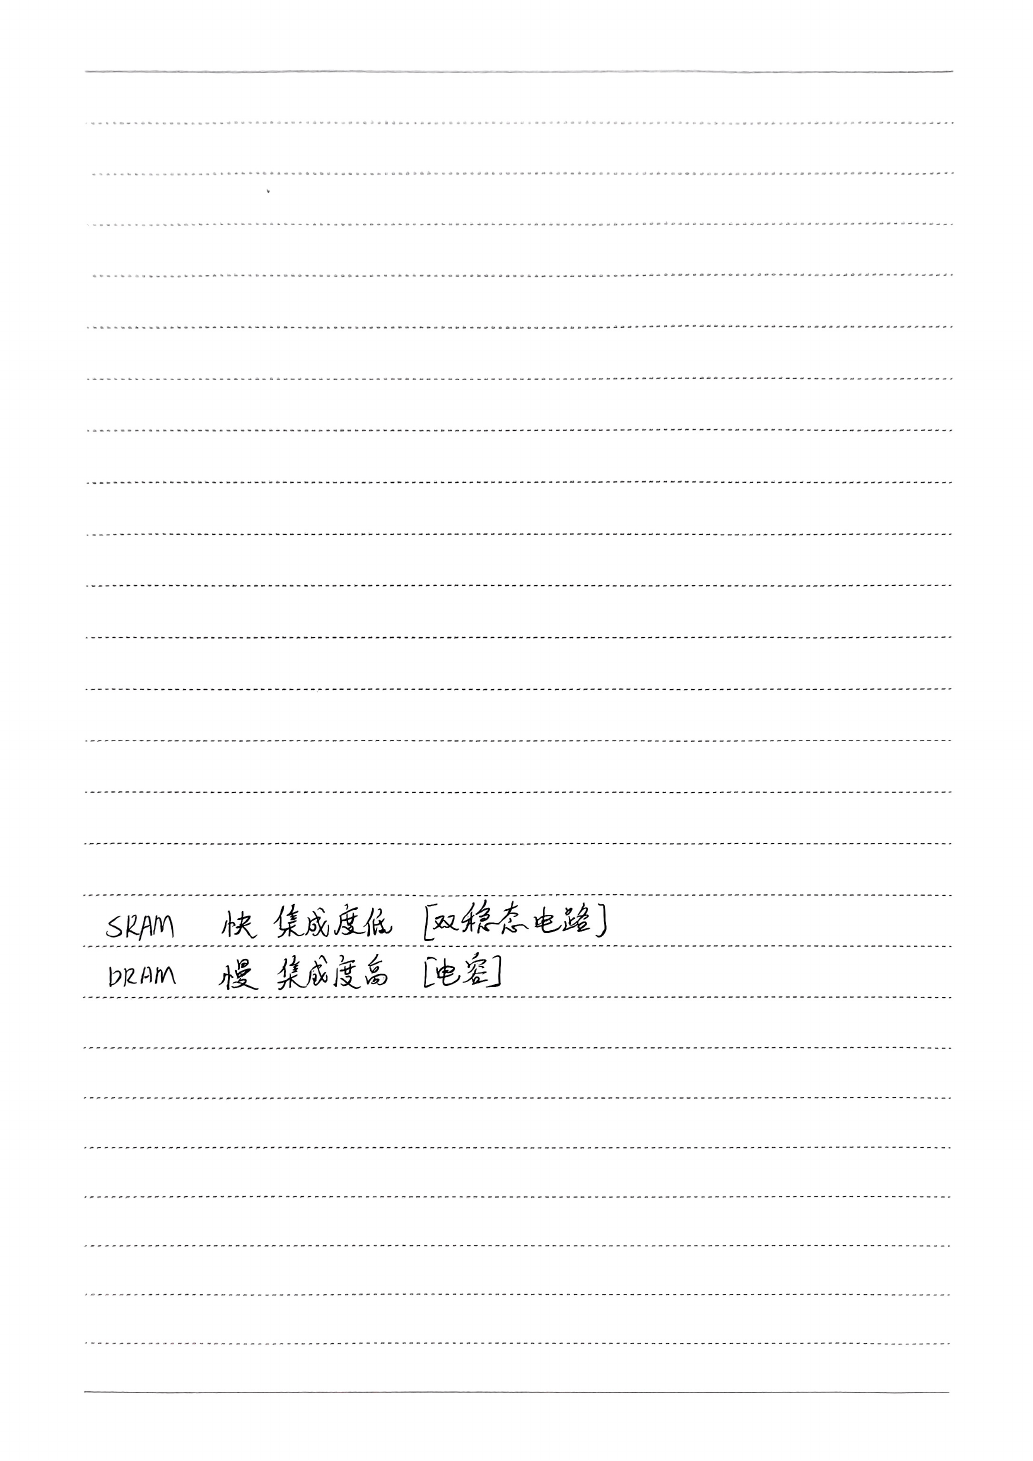 SRAM 快 集成度低 [双稳态电路]
DRAM 慢 集成度高 [电容]